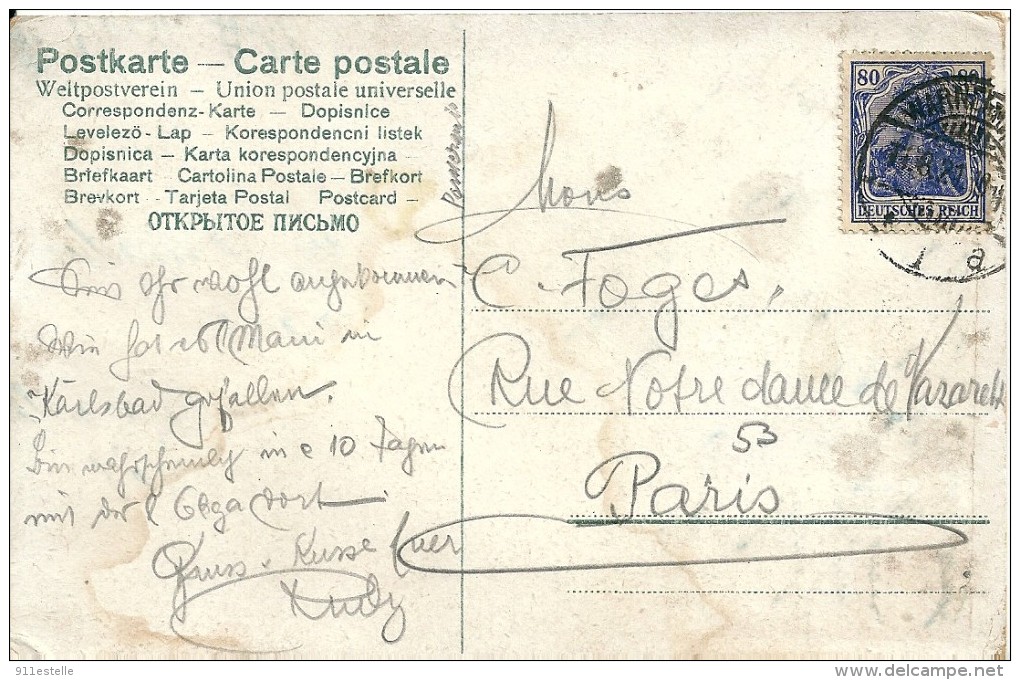 Postkarte — Carte postale
Weltpostverein — Union postale universelle
Correspondenz-Karte — Dopisnice
Levelező-Lap — Korespondencni listek
Dopisnica — Karta korespondencyjna —
Briefkaart — Cartolina Postale — Brefkort
Brevkort — Tarjeta Postal Postcard —
ОТКРЫТОЕ ПИСЬМО
80 80
DEUTSCHES REICH
1 a
Mons
C. Foges,
Rue Notre dame de Nazareth
53
Paris
Ihr wohl angekommen
Wie hat es Mani in
Karlsbad gefallen.
Bin in 10 Tagen
mit Olga dort
Gruss. Kusse Euer
911estelle
www.delcampe.net